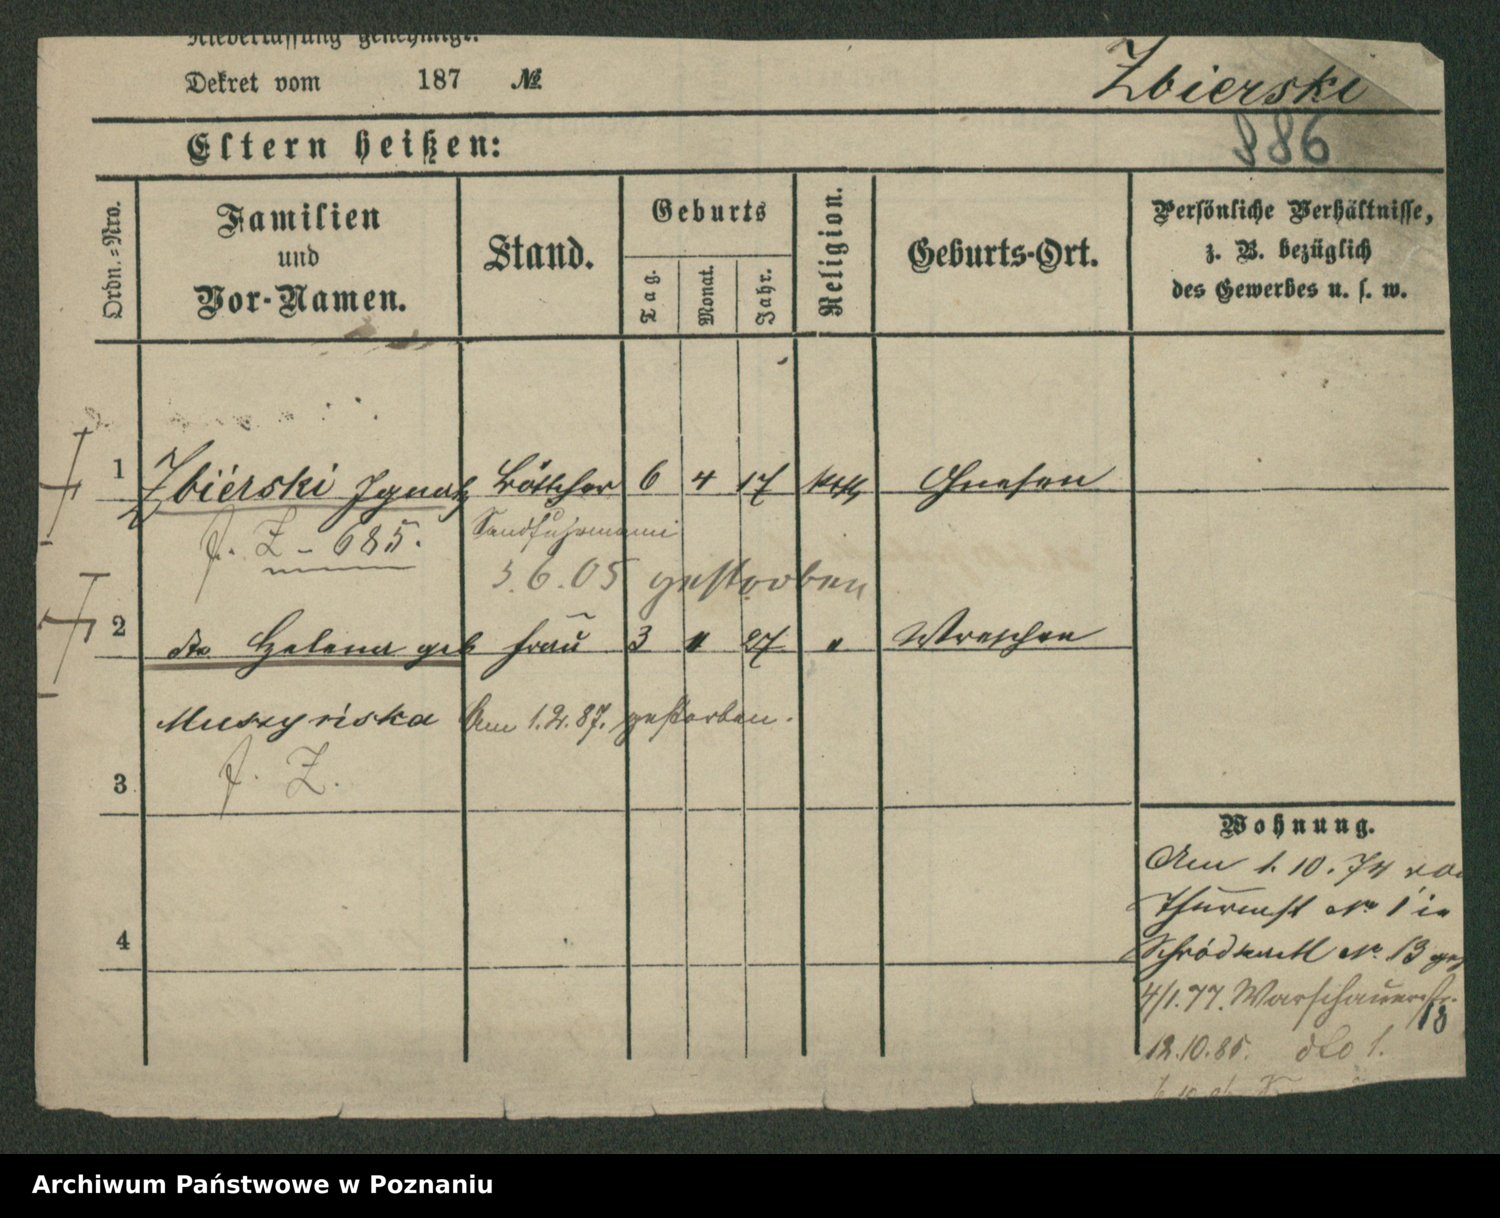 Niederlassung genehmigt.
Dekret vom 187 №
Zbierski
886
Eltern heißen:
Ordn.=Nro.
Familien
und
Vor-Namen.
Stand.
Geburts
Tag.
Monat.
Jahr.
Religion.
Geburts-Ort.
Persönliche Verhältnisse,
z. B. bezüglich
des Gewerbes u. s. w.
1 Zbierski Ignatz Böttcher 6 4 17 kath Gnesen
f. Z - 685.
Sandfuhrmann
3.6.05 gestorben
2 dto Helena geb Frau 3 " 27 " Wreschen
Muszyńska Am 1.2.87. gestorben.
f. Z.
3
4
Wohnung.
Am 1.10.74 von
Thurmst No 1 in
Schrödkamtl No 13
4/1.77. Warschauerstr.
18
12.10.85. dto 1.